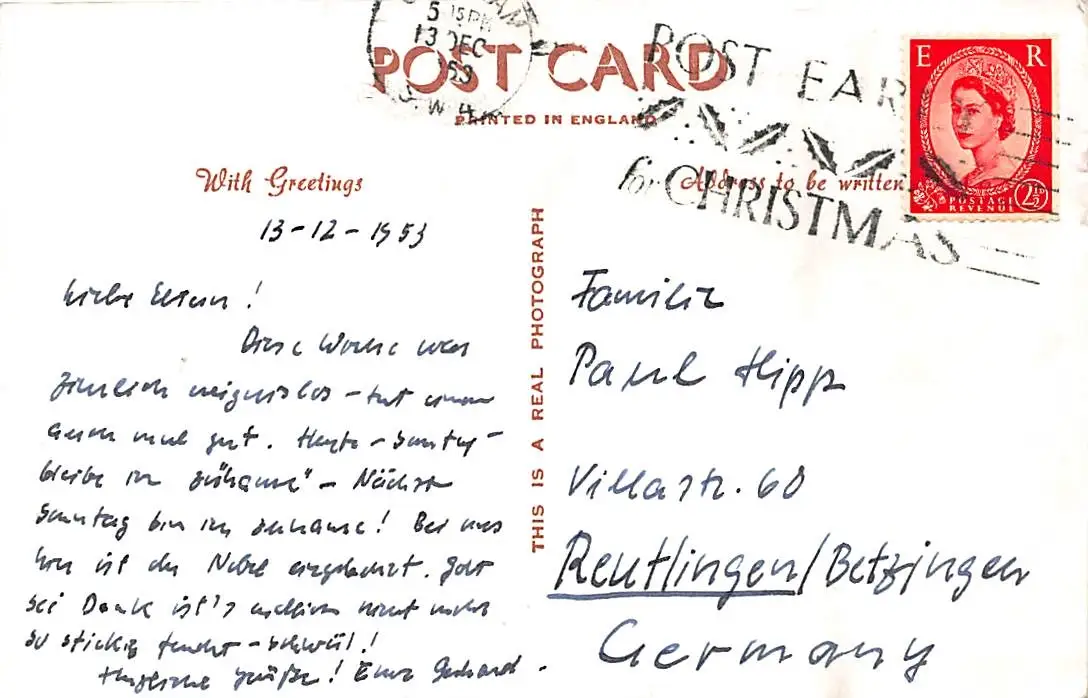 5 15 PM
13 DEC
1953
S.W.
POST CARD
PRINTED IN ENGLAND
POST EAR
for CHRISTMAS
E R
POSTAGE
REVENUE
2½D
With Greetings
Address to be written
13-12-1953
Liebe Eltern!
Diese Woche war
ziemlich ereignislos - tut einem
auch mal gut. Heute - Sonntag -
bleibe ich "zuhause" - Nächsten
Sonntag bin ich zuhause! Bei uns
hier ist der Nebel. Gott
sei Dank ist's nicht mehr
so stickig feucht - schwül!
Herzliche Grüße! Euer Gerhard.
THIS IS A REAL PHOTOGRAPH
Familie
Paul Hipp
Villastr. 60
Reutlingen/Betzingen
Germany